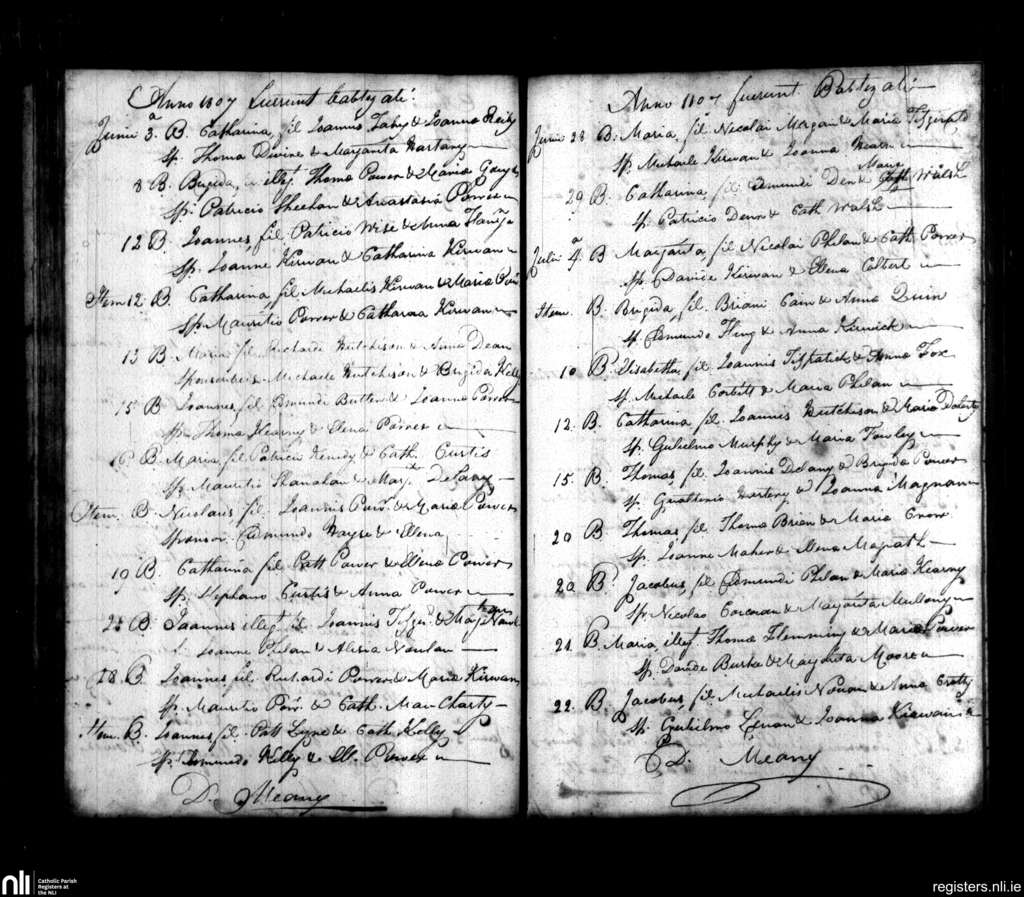 Anno 1807 fuerunt Babtizati
Junii 3.a B. Catharina, fil Joannis Fahy & Joanna Reily
Sp. Thoma Divine & Margarita Hartany
8 B. Brigida, illeg. Thoma Power & Maria
Sp. Patricio Sheehan & Anastasia Power
12 B. Joannes, fil Patricio Wise & Anna
Sp. Joanne Kirwan & Catharina Kirwan
Item 12. B. Catharina fil Michaelis Kirwan & Maria
Sp. Mauritio Power & Catharina Kirwan
13 B. Maria fil Richardi Hutchison & Anna Dean
Michaele Hutchison & Brigida Kelly
15 B Joannes, fil Edmundi Butler & Joanna Power
Sp. Thoma Kearny & Elena Power
B. Maria, fil Patricii Kenedy & Cath. Curtis
Sp. Mauritio Shanahan & Marg. Delany
Item. B. Nicolaus fil. Joannis Powr. & Maria Power
Sponsor. Edmundo & Ellena
19 B. Catharina fil Patt Power & Elena Power
Sp. Stephano Curtis & Anna Power
B. Joannes illegt. Joannis &
Joanne Phelan & Alicia Nowlan
28. B. Joannes fil Richardi Power & Maria Kirwan
Sp. Mauritio Powr. & Cath. MacCharty
Item. B. Joannes, fil. Patt Lyne & Cath Kelly
Sp. Edmundo Kelly & Ell. Power
D. Meany
Anno 1807 fuerunt Babtizati
Junii 28 B. Maria, fil. Nicolai Morgan & Maria
Sp. Michaele Kirwan & Joanna
29 B. Catharina, fil Edmundi Denn & Maria Walsh
Sp. Patricio Denn & Cath Walsh
Julii 4.a B Margarita, fil Nicolai Phelan & Cath. Power
Sp. Davide Kirwan & Elena Colbert
Item. B. Brigida, fil. Briani Cain & Anna Quin
Sp. Edmundo & Anna Kirwick
10 B. Elisabetha, fil. Joannis & Anna Fox
Sp. Michaele Corbett & Maria Phelan
12. B. Catharina fil. Joannis Hutcheson & Maria
Sp. Gulielmo Murphy & Maria Fowley
15. B. Thomas fil. Joannis Delany & Brigida Power
Sp. Gualterio Hartery & Joanna Magnan
20 B. Thomas, fil Thoma Brien & Maria Crow
Sp. Joanne Maher & Elena Magrath
20. B. Jacobus, fil Edmundi Phelan & Maria Kearny
Sp. Nicolao Corcoran & Margarita Mullowny
21. B. Maria, illegt. Thoma Flemming & Maria Power
Sp. Davide Burke & Margarita Moore
22. B. Jacobus, fil Michaelis & Anna Crotty
Sp. Gulielmo & Joanna Kirwan
D. Meany
nli
Catholic Parish
Registers at
the NLI
registers.nli.ie